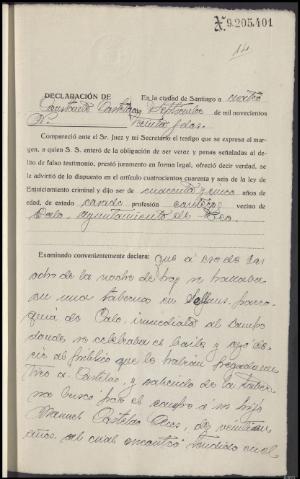 N.9.205.401
14
DECLARACIÓN DE En la ciudad de Santiago a cuatro
Constante Castelao Septiembre de mil novecientos
treinta y dos.
Compareció ante el Sr. Juez y mi Secretario el testigo que se expresa al mar-
gen, a quien S. S. enteró de la obligación de ser veraz y penas señaladas al de-
lito de falso testimonio, prestó juramento en forma legal, ofreció decir verdad, se
le advirtió de lo dispuesto en el artículo cuatrocientos cuarenta y seis de la ley
de Enjuiciamiento criminal y dijo ser de cuarenta y cinco años de
edad, de estado casado profesión cantero vecino de
Calo, ayuntamiento de Teo.
Examinado convenientemente declara: que a eso de las
ocho de la noche de hoy se hallaba
en una taberna en parro-
quia de Calo inmediata al campo
donde se celebraba el baile y oyó de-
cir al público que le habían pegado un
tiro a Castelao, y saliendo de la taber-
na buscó por el campo a su hijo
Manuel Castelao de veintiun
años, al cual encontró tendido en el